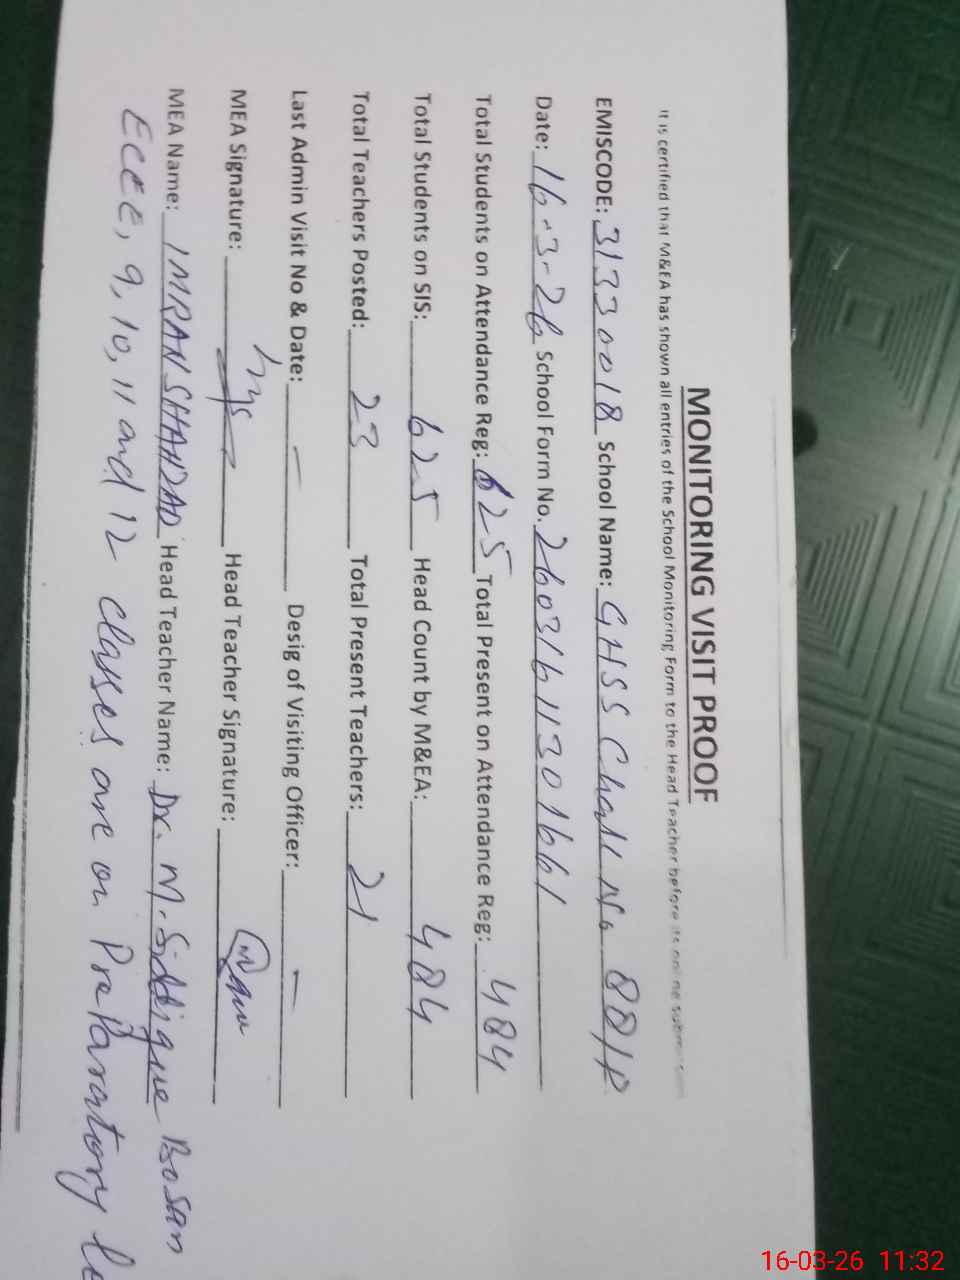 MONITORING VISIT PROOF
It is certified that M&EA has shown all entries of the School Monitoring Form to the Head Teacher before its online submission
EMISCODE: 31330018 School Name: GHSS Chak No 88/P
Date: 16-3-26 School Form No. 26031611301661
Total Students on Attendance Reg: 625 Total Present on Attendance Reg: 484
Total Students on SIS: 625 Head Count by M&EA: 484
Total Teachers Posted: 23 Total Present Teachers: 21
Last Admin Visit No & Date: — Desig of Visiting Officer: —
MEA Signature: Head Teacher Signature:
MEA Name: IMRAN SHAHZAD Head Teacher Name: Dr. M. Siddique Bosan
ECCE, 9, 10, 11 and 12 classes are on Preparatory le
16-03-26 11:32